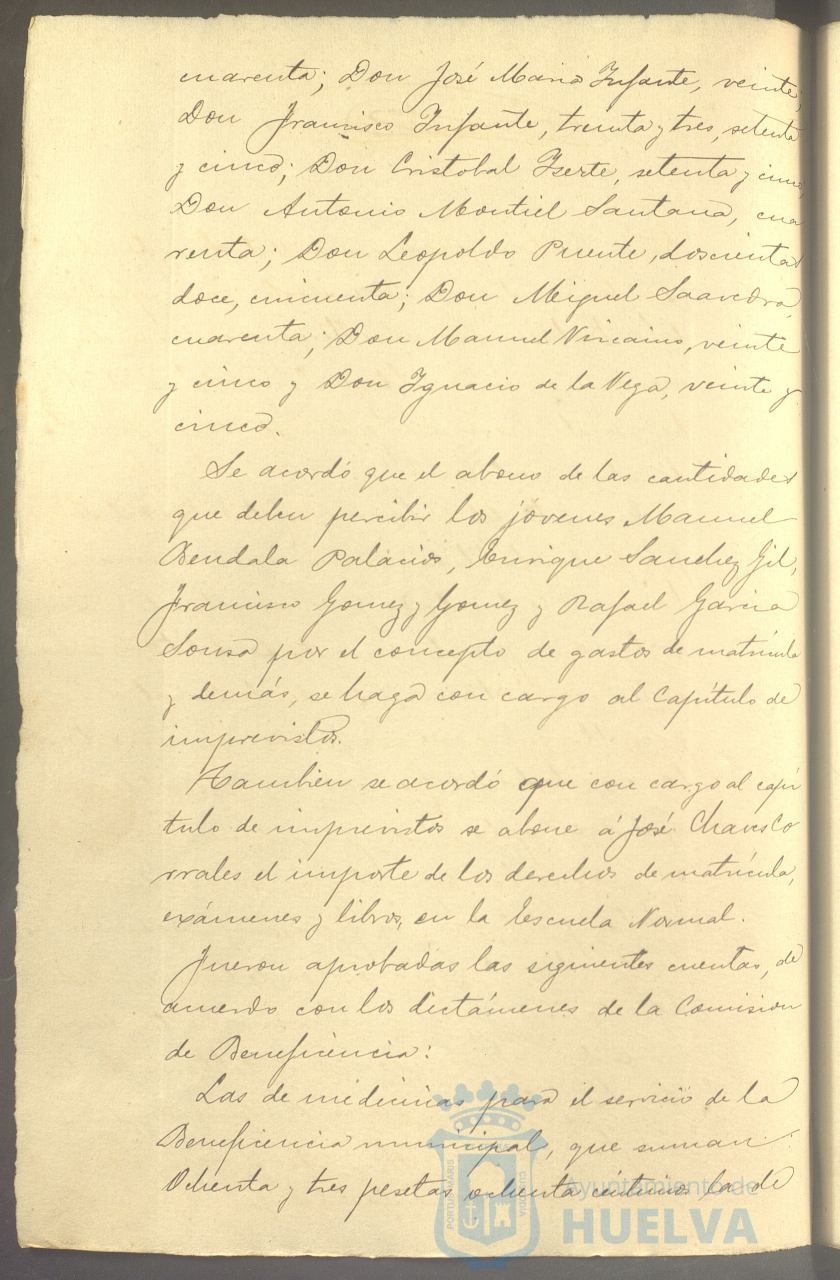 cuarenta; Don José Maria Infante, veinte;
Don Francisco Infante, treinta y tres, setenta
y cinco; Don Cristobal Iserte, setenta y cinco,
Don Antonio Montiel Santana, cua
renta; Don Leopoldo Puente, doscientas
doce, cincuenta; Don Miguel Saavedra,
cuarenta; Don Manuel Vizcaino, veinte
y cinco y Don Ygnacio de la Vega, veinte y
cinco.
Se acordó que el abono de las cantidades
que deben percibir los jóvenes Manuel
Bendala Palacios, Enrique Sanchez Gil,
Francisco Gomez y Gomez y Rafael Garcia
Sousa por el concepto de gastos de matrícula
y demás, se haga con cargo al Capítulo de
imprevistos.
Tambien se acordó que con cargo al capí
tulo de imprevistos se abone á José Chaves Co
rrales el importe de los derechos de matrícula,
exámenes y libros, en la Escuela Normal.
Fueron aprobadas las siguientes cuentas, de
acuerdo con los dictámenes de la Comision
de Beneficencia:
Las de medicinas para el servicio de la
Beneficencia municipal, que suman
Ochenta y tres pesetas ochenta céntimos la de
Ayuntamiento de
HUELVA
PORTUS MARIS
CUSTODIA